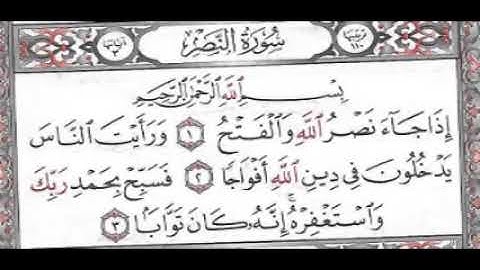 ترتيبها ١١٠ سُورَةُ النَّصْرِ آياتها ٣
بِسْمِ اللَّهِ الرَّحْمَٰنِ الرَّحِيمِ
إِذَا جَآءَ نَصْرُ اللَّهِ وَالْفَتْحُ ١ وَرَأَيْتَ النَّاسَ
يَدْخُلُونَ فِي دِينِ اللَّهِ أَفْوَاجًا ٢ فَسَبِّحْ بِحَمْدِ رَبِّكَ
وَاسْتَغْفِرْهُ ۚ إِنَّهُ كَانَ تَوَّابًا ٣